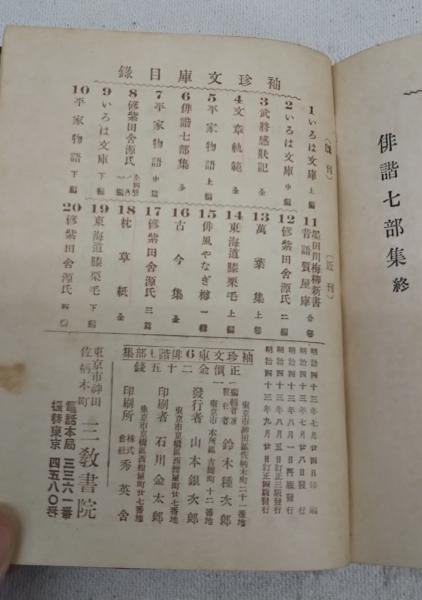 俳諧七部集 終
袖珍文庫目録
(既刊)
1 いろは文庫 上編
2 いろは文庫 中編
3 武将感状記 全
4 文章軌範 全
5 平家物語 上編
6 俳諧七部集 全
7 平家物語 中篇
8 偐紫田舎源氏 一編
9 いろは文庫 下編
10 平家物語 下編
(近刊)
11 墨田川梅柳新書 昔語質屋庫 合巻
12 偐紫田舎源氏 二編
13 萬葉集 上巻
14 東海道膝栗毛 上編
15 俳風やなぎ樽 一輯
16 古今集 全
17 偐紫田舎源氏 三篇
18 枕草紙 全
19 東海道膝栗毛 下編
20 偐紫田舎源氏 四編
明治四十三年七月廿四日印刷
明治四十三年七月廿八日發行
明治四十三年八月一日再版發行
明治四十三年八月五日訂正三版發行
明治四十三年九月廿日訂正四版發行
袖珍文庫6 俳諧七部集
正價金二十五錢
東京市本所區 吉岡町十二番地
鈴木種次郎
東京市神田區佐柄木町二十一番地
發行者 山本銀次郎
東京市京橋區西紺屋町廿七番地
印刷者 石川金太郎
東京市京橋區西紺屋町廿七番地
印刷所 株式會社 秀英舎
東京市神田
佐柄木町
三教書院
電話本局 三三六一番
振替東京 四五八〇番